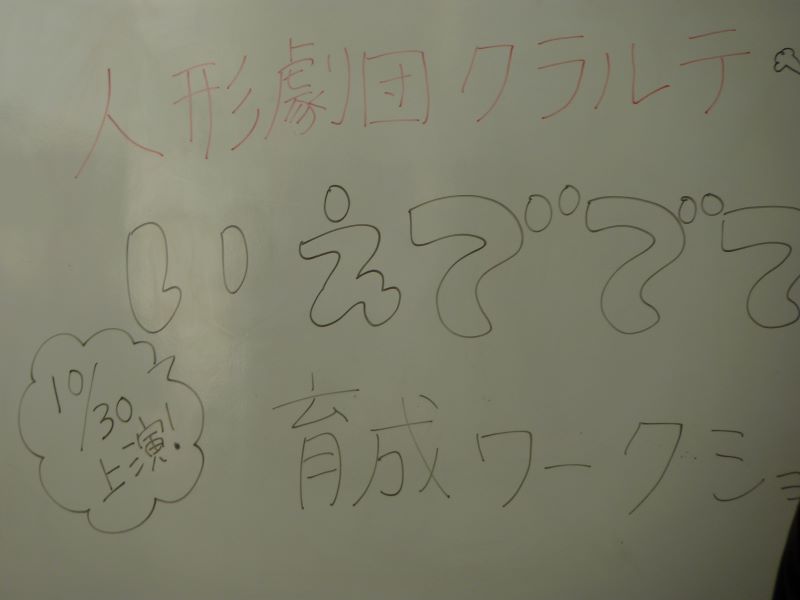 人形劇団クラルテ
いえでで
10/30
上演!
育成ワークショ